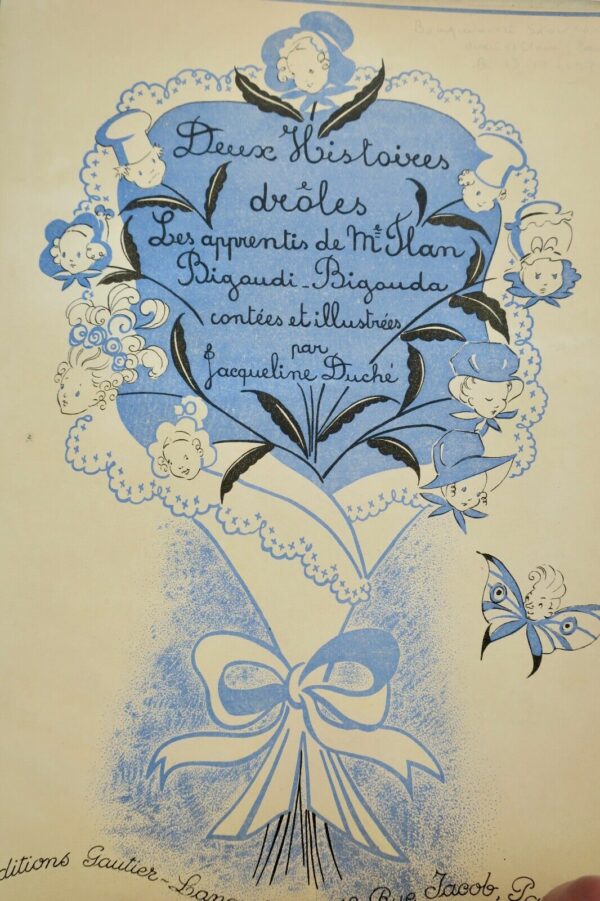 Deux Histoires
drôles
Les apprentis de Mᵗ Flan
Bigoudi - Bigouda
contées et illustrées
par
Jacqueline Duché
ditions Gautier-Lang Rue Jacob, Pa